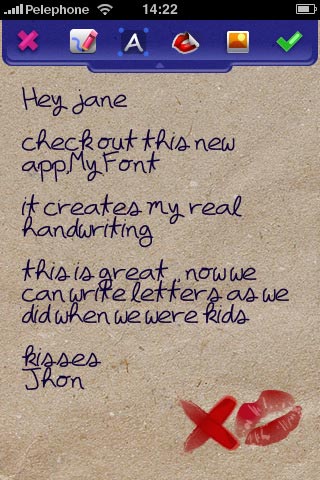 Pelephone 14:22
A
Hey jane
check out this new
app,My Font
it creates my real
handwriting
this is great , now we
can write letters as we
did when we were kids
kisses
Jhon
X